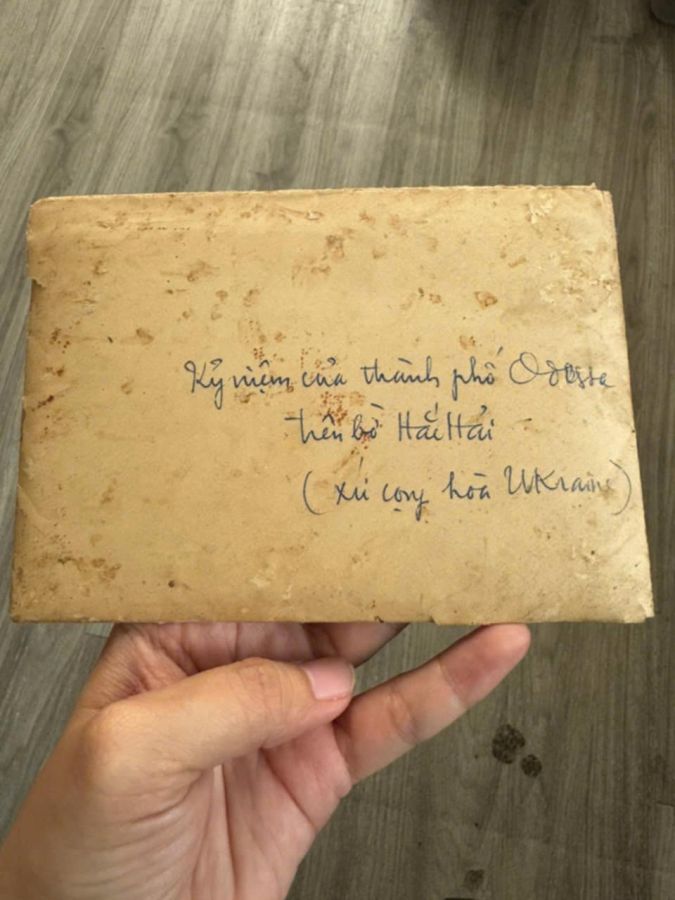 Kỷ niệm của thành phố Odessa
trên bờ Hắc Hải
( xứ cộng hòa UKraine)